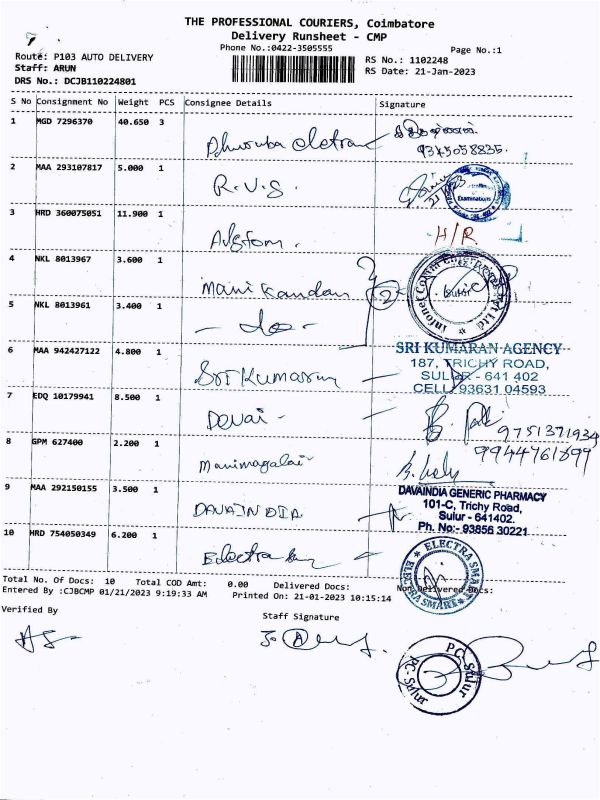 THE PROFESSIONAL COURIERS, Coimbatore
Delivery Runsheet - CMP
Phone No.:0422-3505555
Page No.:1
7
Route: P103 AUTO DELIVERY
Staff: ARUN
DRS No.: DCJB110224801
RS No.: 1102248
RS Date: 21-Jan-2023
S No Consignment No Weight PCS Consignee Details Signature
1 MGD 7296370 40.650 3
9345058835.
2 MAA 293107817 5.000 1 R.V.S.
Examinations
3 HRD 360075051 11.900 1 H/R
4 NKL 8013967 3.600 1 Manikandan 2
Sulur
5 NKL 8013961 3.400 1 - do -
6 MAA 942427122 4.800 1 Sri Kumaran
SRI KUMARAN AGENCY
187, TRICHY ROAD,
SULUR - 641 402
CELL: 93631 04593
7 EDQ 10179941 8.500 1
9751371934
8 GPM 627400 2.200 1 Manimagalai
9944761899
9 MAA 292150155 3.500 1 DAVAINDIA
DAVAINDIA GENERIC PHARMACY
101-C, Trichy Road,
Sulur - 641402.
Ph. No:- 93856 30221
10 HRD 754050349 6.200 1 Electra
ELECTRA SMART
ELECTRA SMART
Total No. Of Docs: 10 Total COD Amt: 0.00 Delivered Docs: Not Delivered Docs:
Entered By :CJBCMP 01/21/2023 9:19:33 AM Printed On: 21-01-2023 10:15:14
Verified By
Staff Signature
PC - Sulur
PC - Sulur